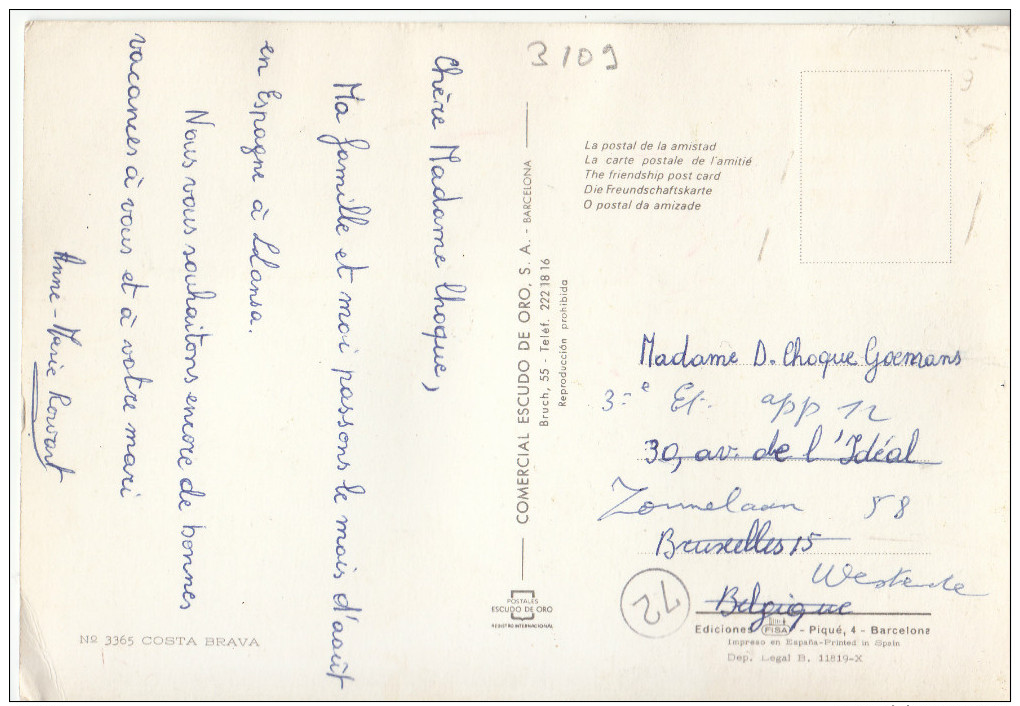 3109
Chère Madame Choque,
Ma famille et moi passons le mois d'août
en Espagne à Llansa.
Nous vous souhaitons encore de bonnes
vacances à vous et à votre mari
Anne-Marie Rowart
La postal de la amistad
La carte postale de l'amitié
The friendship post card
Die Freundschaftskarte
O postal da amizade
COMERCIAL ESCUDO DE ORO, S. A. - BARCELONA
Bruch, 55 - Teléf. 222 18 16
Reproducción prohibida
Madame D. Choque Goemans
3e Et. app 12
30, av. de l'Idéal
Zonnelaan 58
Bruxelles 15
Westende
Belgique
72
POSTALES
ESCUDO DE ORO
REGISTRO INTERNACIONAL
Ediciones FISA - Piqué, 4 - Barcelona
Impreso en España-Printed in Spain
Dep. Legal B. 11819-X
Nº 3365 COSTA BRAVA